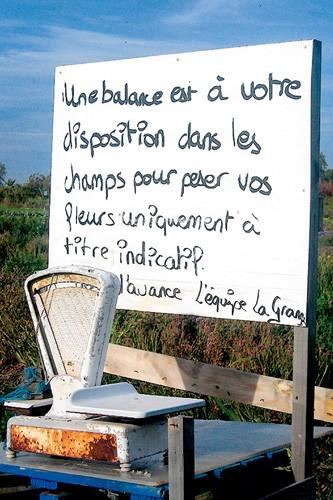 Une balance est à votre
disposition dans les
champs pour peser vos
fleurs uniquement à
titre indicatif.
l'avance L'équipe La Grang